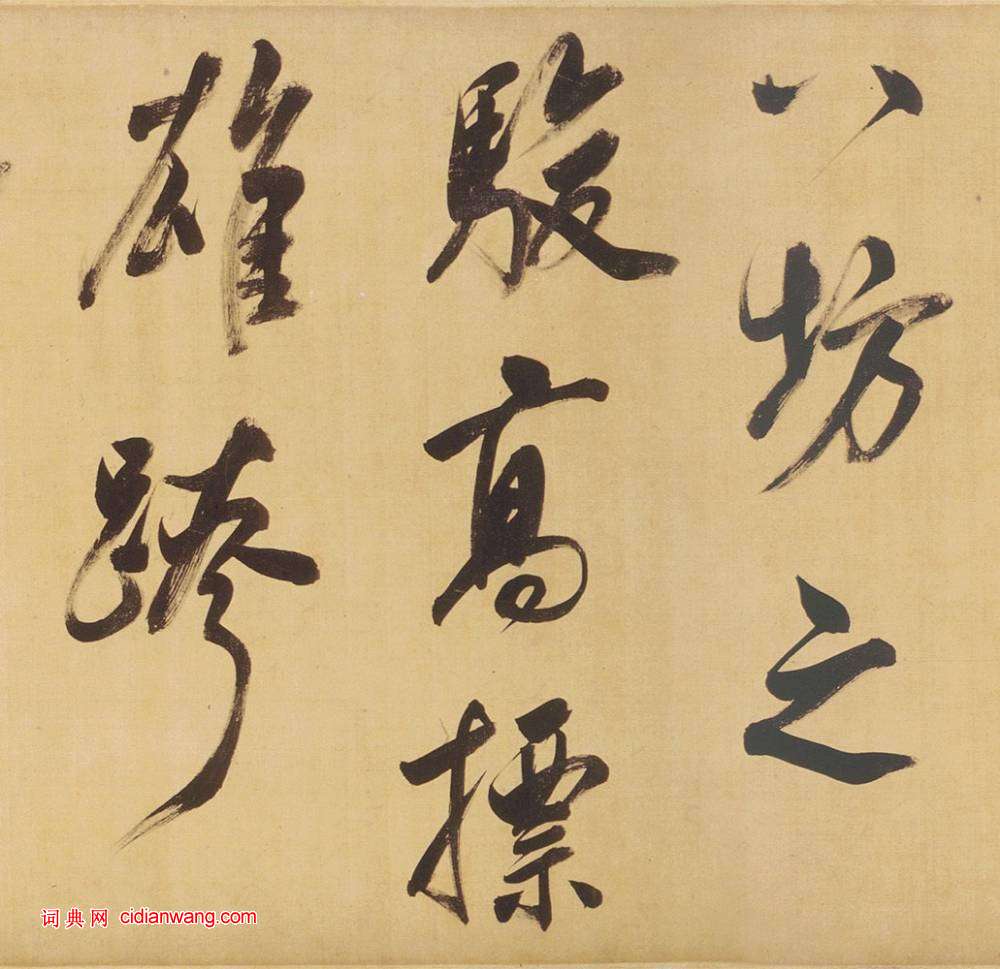 八坊之
駿高摽
雄跨
词典网 cidianwang.com